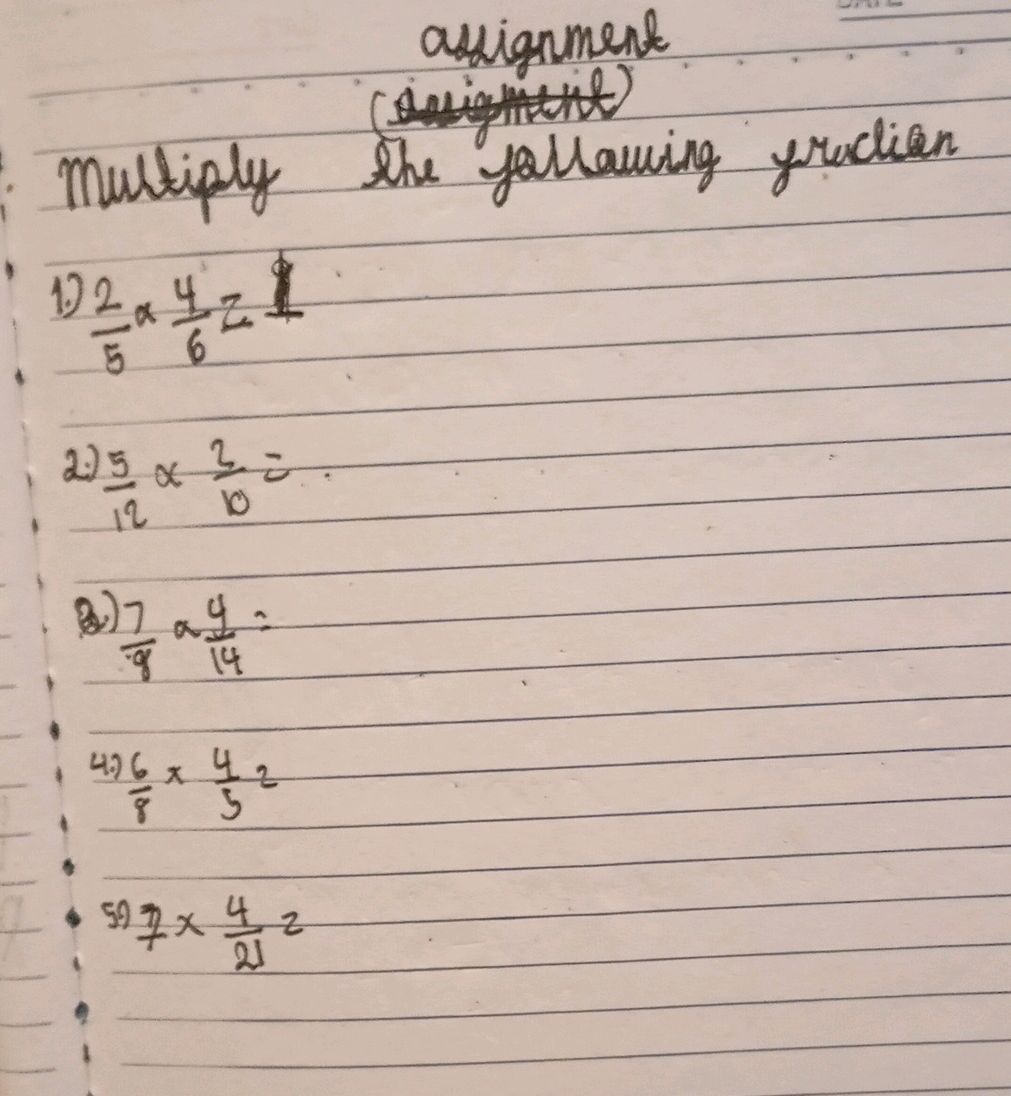 DATE
assignment
(assigment)
Multiply the following fraction
1.) 2/5 × 4/6 =
2.) 5/12 × 2/10 =
3.) 7/8 × 4/14 =
4.) 6/8 × 4/5 =
5.) 7 × 4/21 =